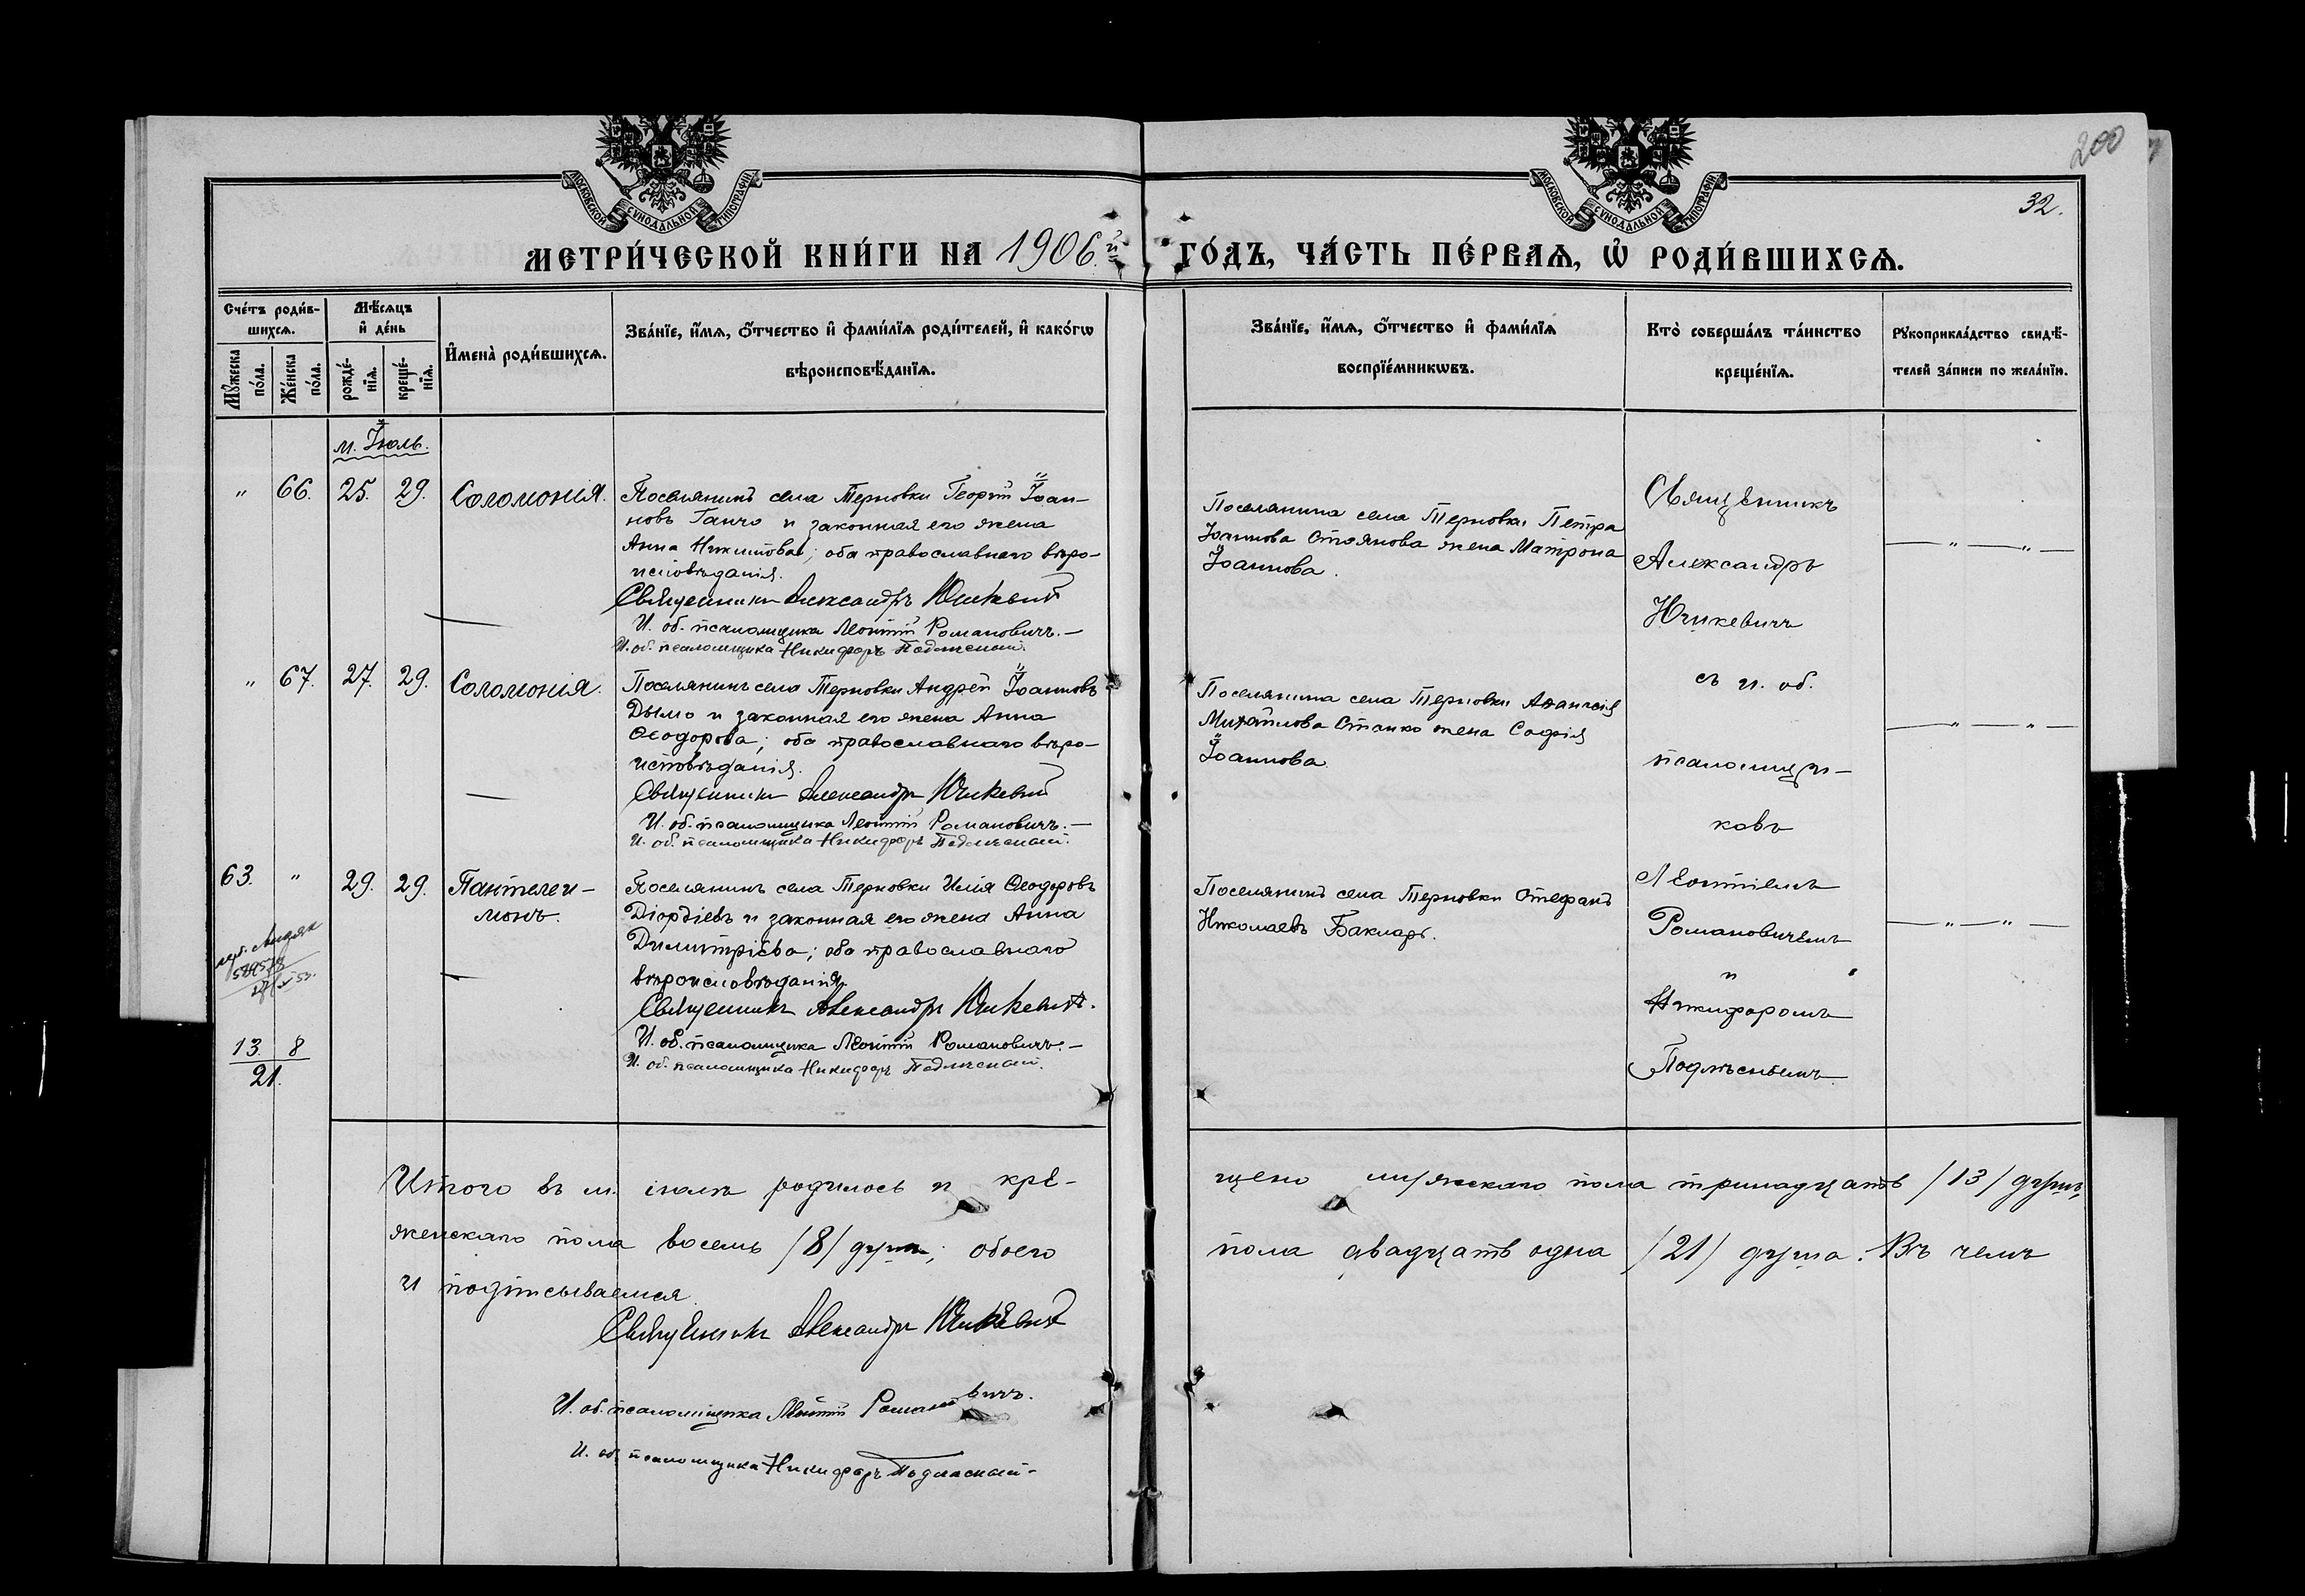 200
32.
МОСКОВСКОЙ СѴНОДАЛЬНОЙ ТИПОГРАФІИ
МОСКОВСКОЙ СѴНОДАЛЬНОЙ ТИПОГРАФІИ
МЕТРИ́ЧЕСКОЙ КНИ́ГИ НА 1906.й ГО́ДЪ, ЧА́СТЬ ПЕ́РВАѦ, Ѡ҆ РОДИ́ВШИХСѦ.
Сче́тъ роди́в-
шихсѧ.
Мꙋ́жеска по́ла.
Же́нска по́ла.
Мѣ́сѧцъ
и҆ де́нь
рожде́-
нїѧ.
креще́-
нїѧ.
И҆мена̀ роди́вшихсѧ.
Зва́нїе, и҆́мѧ, ѻ҆́тчество и҆ фами́лїѧ роди́телей, и҆ како́гѡ
вѣроисповѣ́данїѧ.
Зва́нїе, и҆́мѧ, ѻ҆́тчество и҆ фами́лїѧ
воспрїе́мникѡвъ.
Кто̀ соверша́лъ та́инство
креще́нїѧ.
Рꙋкоприкла́дство свидѣ́-
телей за́писи по жела́нїю.
м. Іюль.
" 66. 25. 29. Соломонія.
Поселянинъ села Терновки Георгій Іоан-
новъ Ганчо и законная его жена
Анна Никитова; оба православнаго вѣро-
исповѣданія.
Священникъ Александръ Юшкевичъ
И. об. псаломщика Леонтій Романовичъ.—
И. об. псаломщика Никифоръ Подлѣсный.
Поселянина села Терновки Петра
Іоаннова Стоянова жена Матрона
Іоаннова.
Священникъ
Александръ
Юшкевичъ
съ и. об.
псаломщи-
ковъ
Леонтіемъ
Романовичемъ
и
Никифоромъ
Подлѣснымъ
— " — " —
" 67. 27. 29. Соломонія.
Поселянинъ села Терновки Андрей Іоанновъ
Дымо и законная его жена Анна
Ѳеодорова; оба православнаго вѣро-
исповѣданія.
Священникъ Александръ Юшкевичъ
И. об. псаломщика Леонтій Романовичъ.—
И. об. псаломщика Никифоръ Подлѣсный.
Поселянина села Терновки Аѳанасія
Михайлова Станко жена Софія
Іоаннова.
— " — " —
63. " 29. 29. Пантелеи-
монъ.
Поселянинъ села Терновки Илія Ѳеодоровъ
Діордіевъ и законная его жена Анна
Димитріева; оба православнаго
вѣроисповѣданія.
Священникъ Александръ Юшкевичъ.
И. об. псаломщика Леонтій Романовичъ.—
И. об. псаломщика Никифоръ Подлѣсный.
Поселянинъ села Терновки Стефанъ
Николаевъ Бакларъ.
— " — " —
13. 8
21.
Итого въ м. іюлѣ родилось и кре-
щено мужескаго пола тринадцать /13/ душъ,
женскаго пола восемь /8/ душъ; обоего
пола двадцать одна /21/ душа. Въ чемъ
и подписываемся.
Священникъ Александръ Юшкевичъ
И. об. псаломщика Леонтій Романовичъ.
И. об. псаломщика Никифоръ Подлѣсный.